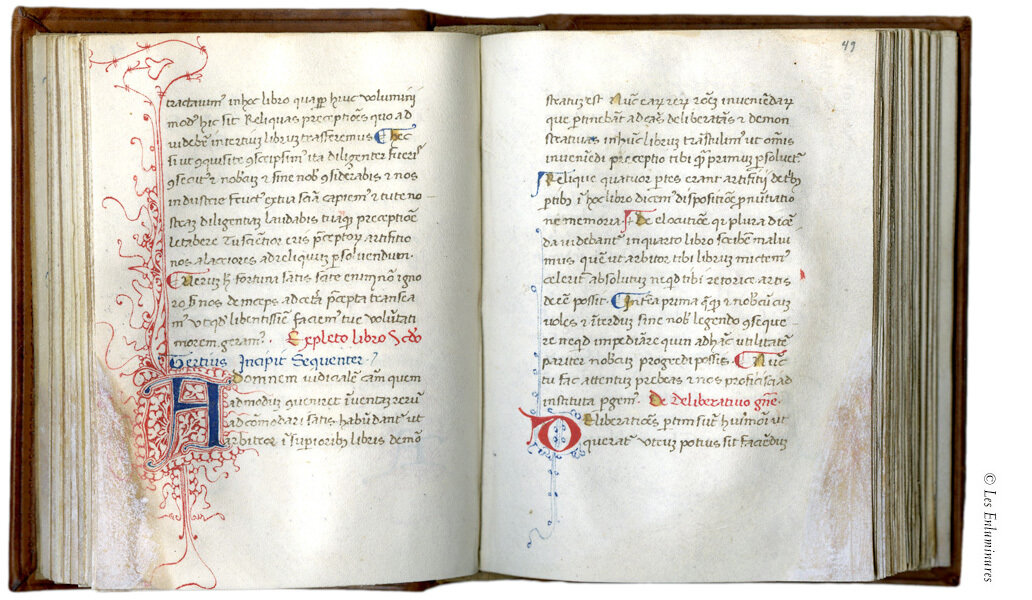 tractauimꝰ in hoc libro quapp̱ huic uolumini
modꝰ hic sit Reliquas preceptiōes quo ad
uidebit̄ in tertiuȝ libruȝ trāsferemus Hec
si ut ꝯquisite ꝯscpsimꝰ ita diligenter fueris
ꝯsecutꝰ ⁊ nobcuȝ ⁊ sine nob̄ ꝯsiderabis ⁊ nos
industrie fructꝰ ex tua sciā capiemꝰ ⁊ tute no
straȝ diligentiaȝ laudabis tuaqȝ preceptiōe
letabere Tu sciētior eris p̄ceptoꝝ artifitio
nos alacriores ad reliquuȝ psoluendum.
Veruȝ h̄ fortuna satis scite enim nō igno
ro ß nos deinceps ad cet̄a p̄cepta transea
mꝰ ut qđ libentissīe faciemꝰ tue uolūtati
morem geramꝰ. Expleto libro Scđo
Tertius Incipit Sequenter
Ad omnem iudicialē cām quem
ad moduȝ ꝯueniret īuentaȝ reruȝ
ad cōmodari satis habūdant̄ ut
arbitror ī superioribȝ libris demō
49
stratuȝ est Nūc eaꝝ reꝝ rōeȝ inueniēdaꝝ
que ptinebāt ad cās deliberatās ⁊ demon
stratiuas in hūc libruȝ trāstulimꝰ ut omīs
inueniēdi preceptio tibi q̄ primum psoluet̄
Relique quatuor ptes erant artifitii de tbꝰ
ptibꝰ ī hoc libro dicemꝰ dispositiōe pnūtatio
ne memoria. De elocutiōe qȝ plura dicē
da uidebant̄ in quarto libro scribere malui
mus queȝ ut arbitror tibi librum mictemꝰ
celerit̄ absolutuȝ ne qd tibi retorice artis
deēe possit. Interea prima q̄qȝ ⁊ nobcuȝ cuȝ
uoles ⁊ īterduȝ sine nob̄ legendo ꝯseque
re ne qd impediāre quin ad hāc utilitatē
pariter nobcuȝ progredi possis. Nūc
tu fac attentuȝ prebeas ⁊ nos proficisci ad
instituta pgemꝰ. De deliberatiuo gn̄e.
Deliberatiōes ptim suȝt huiusmōi ut
querat̄ utruȝ potius sit faciēduȝ
© Les Enluminures